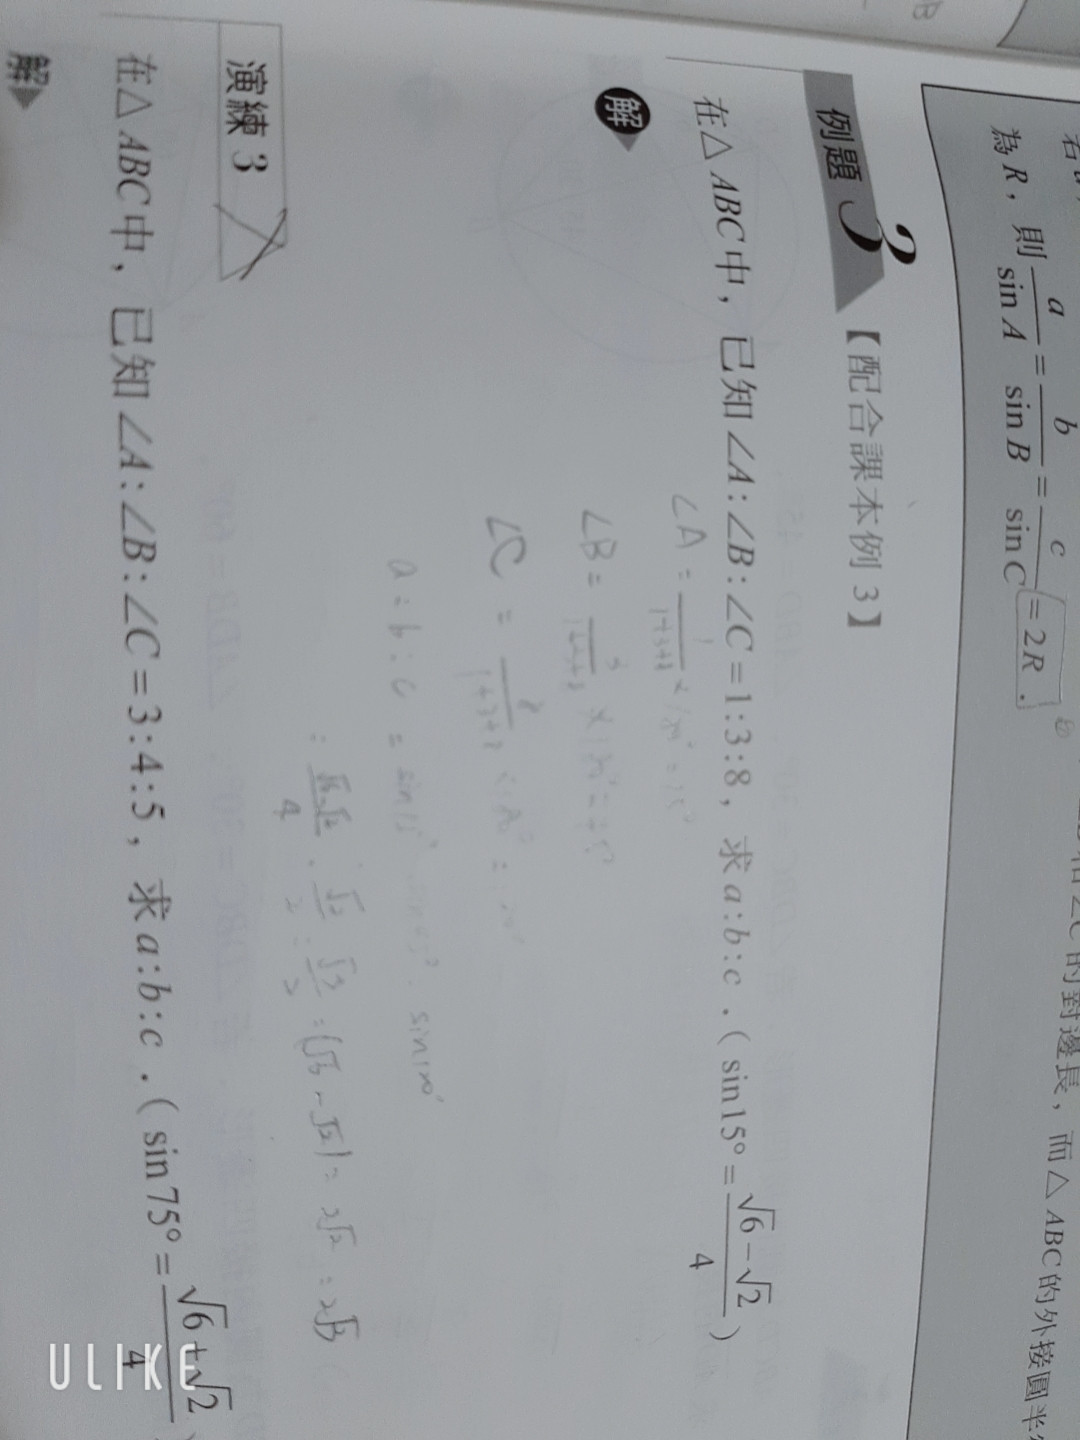 為R,則 a/sin A = b/sin B = c/sin C = 2R.
的對邊長,而△ABC的外接圓半
例題3【配合課本例3】
在△ABC中,已知∠A:∠B:∠C=1:3:8,求a:b:c.(sin15°=(√6-√2)/4)
解
∠A = 1/(1+3+8) × 180° = 15°
∠B = 3/(1+3+8) × 180° = 45°
∠C = 8/(1+3+8) × 180° = 120°
a:b:c = sin15° : sin45° : sin120°
= (√6-√2)/4 : √2/2 : √3/2 = (√6-√2) : 2√2 : 2√3
演練3
在△ABC中,已知∠A:∠B:∠C=3:4:5,求a:b:c.(sin75°=(√6+√2)/4)
解
ULIKE